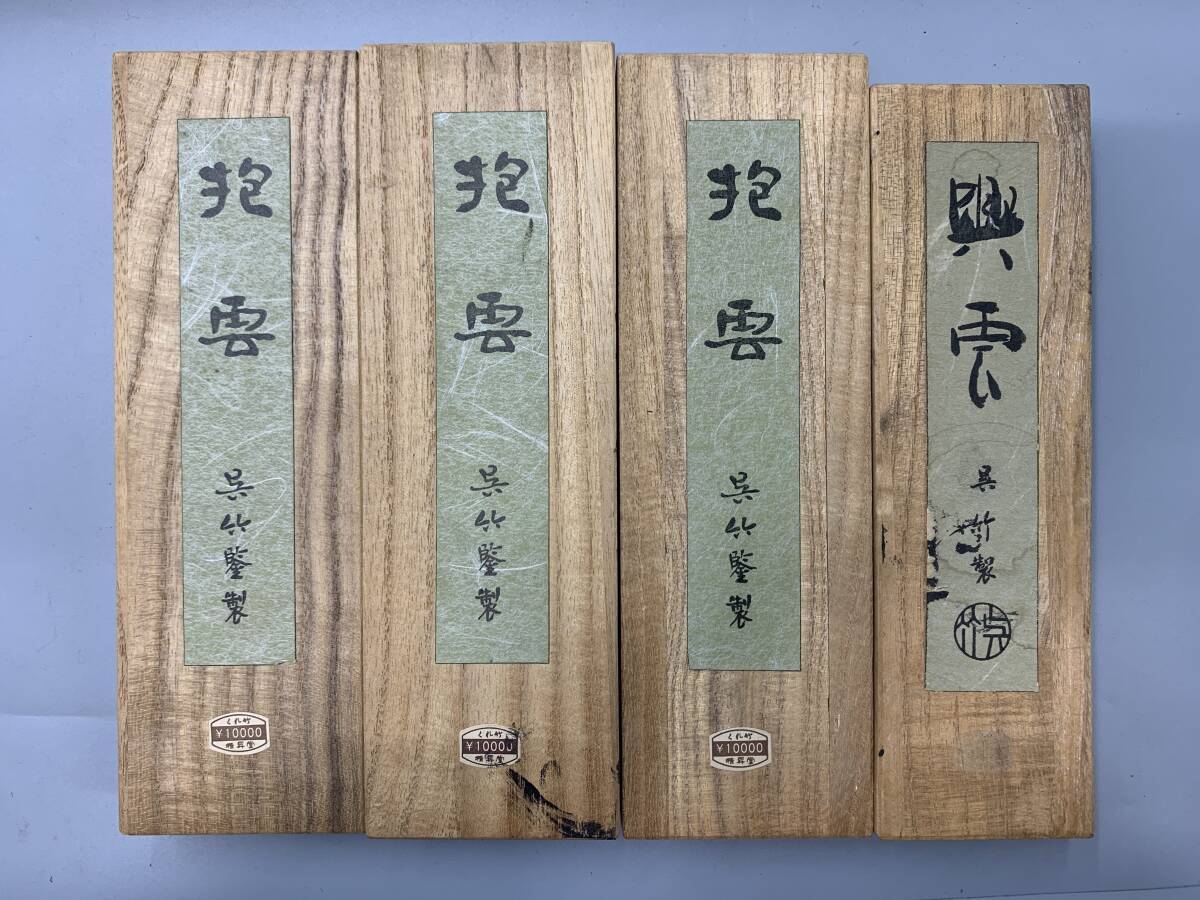 抱雲
呉竹鑒製
くれ竹
¥10000
精昇堂
抱雲
呉竹鑒製
くれ竹
¥1000
精昇堂
抱雲
呉竹鑒製
くれ竹
¥10000
精昇堂
興雲
呉竹製
呉竹